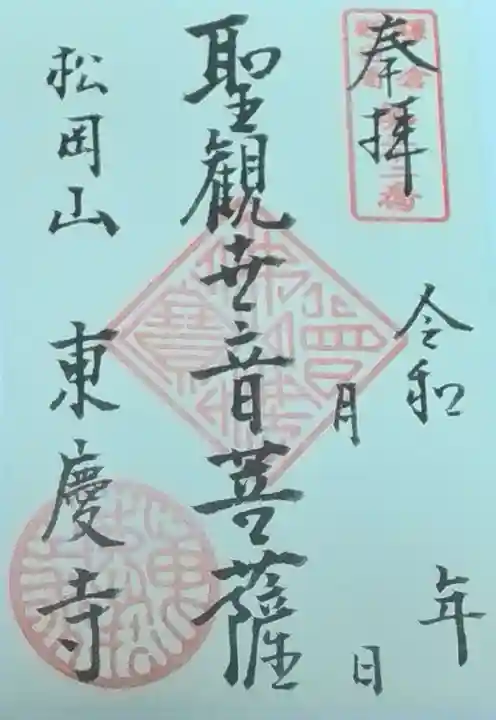 奉拝
令和　年
月　日
聖観世音菩薩
松岡山　東慶寺